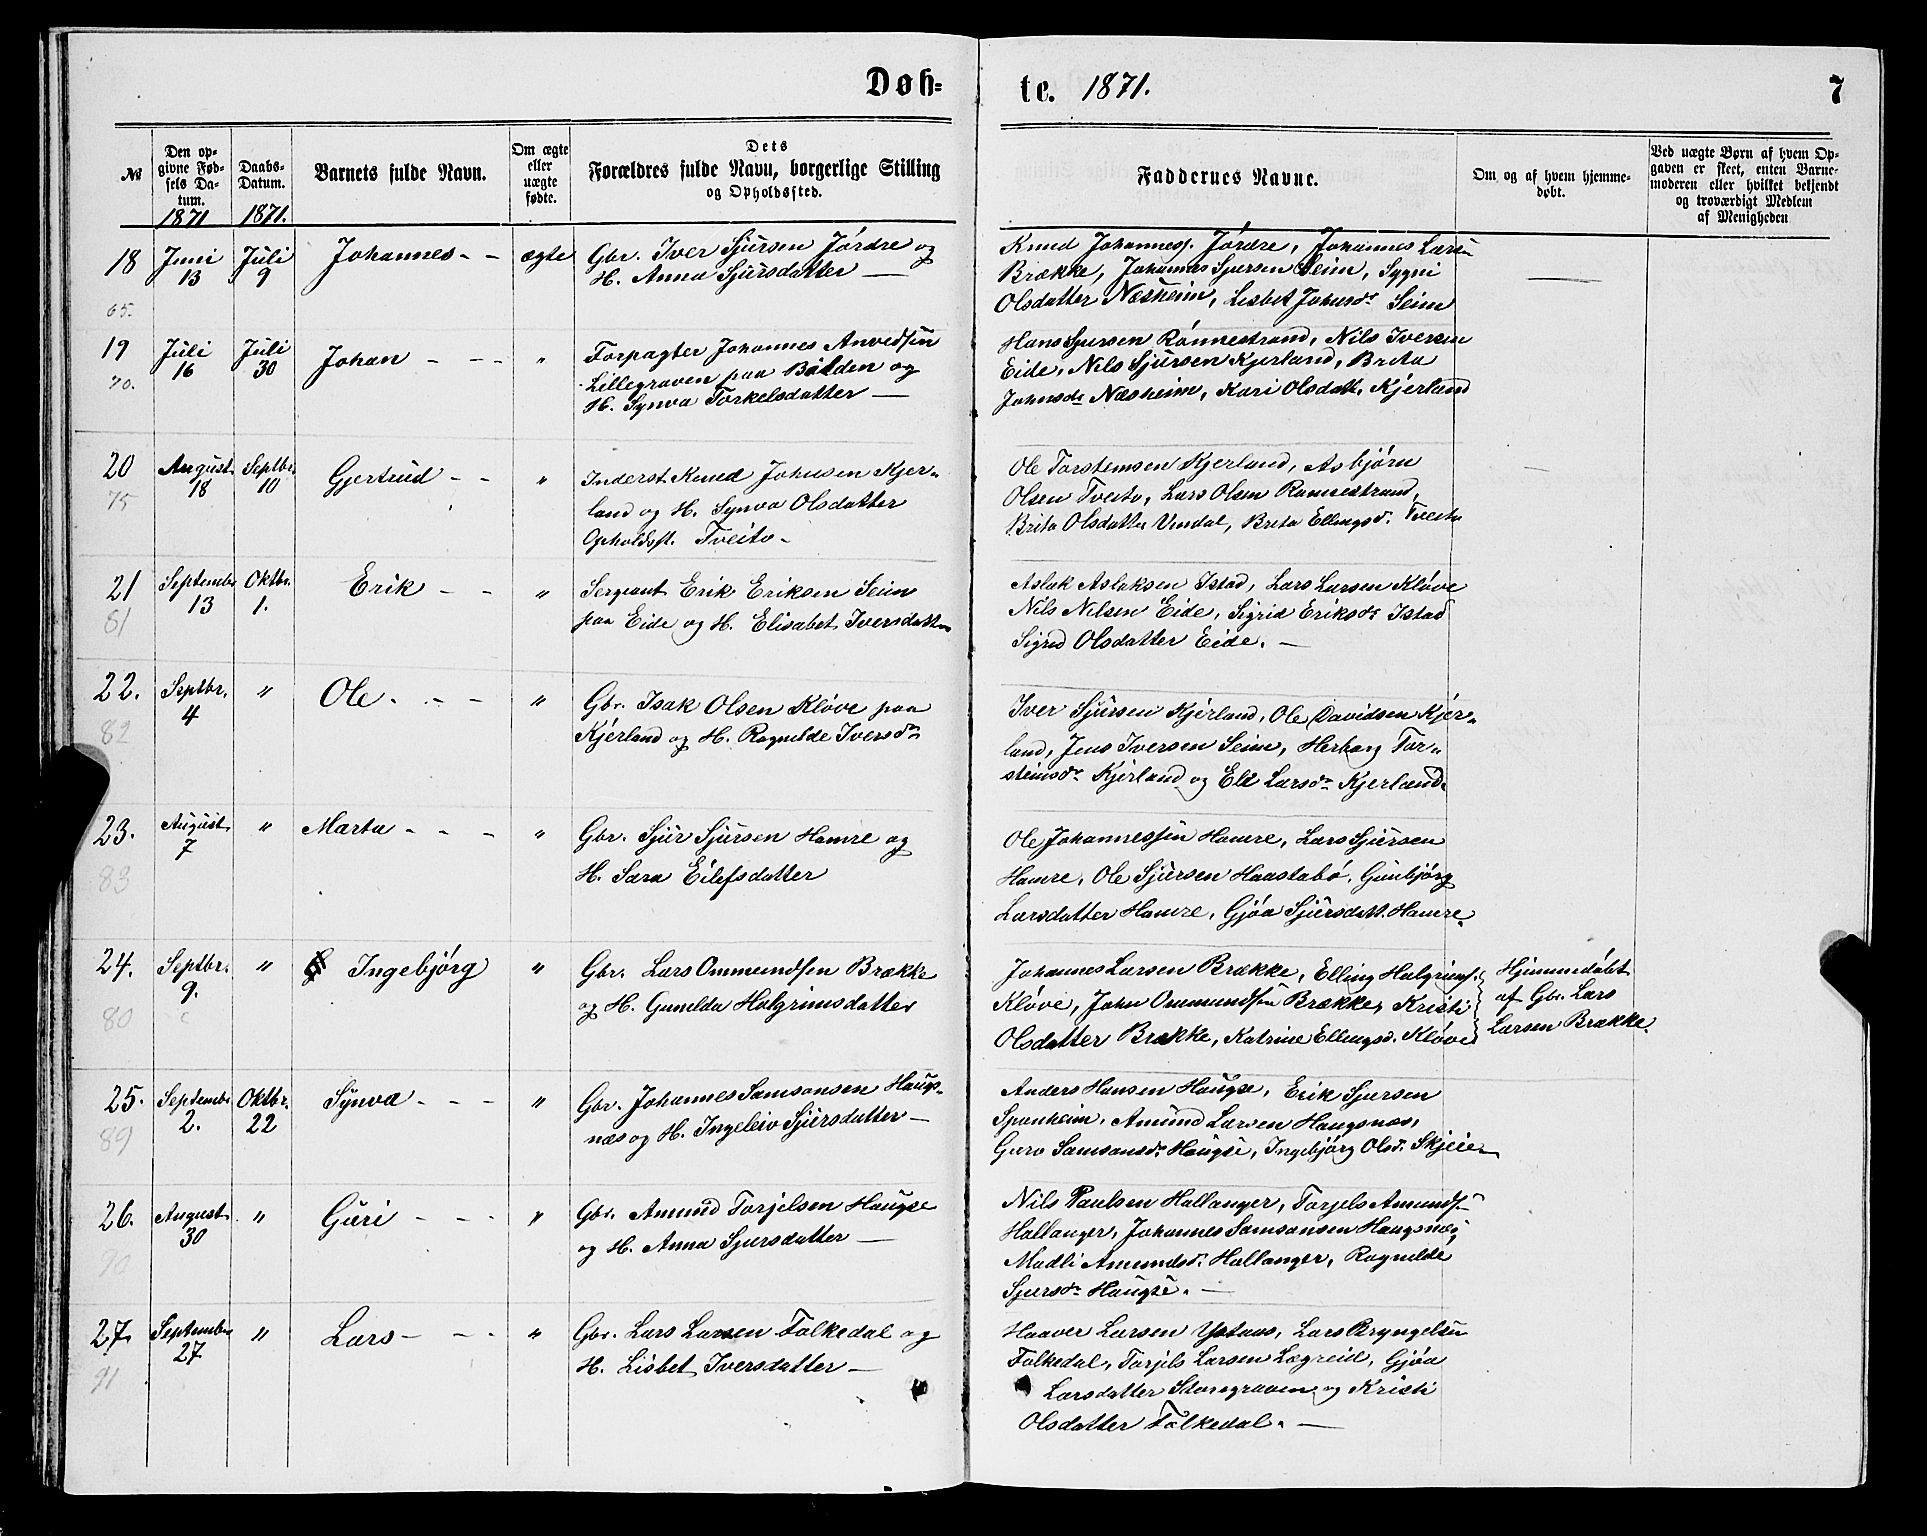 Døb-
te. 1871.
7
№
Den opgivne Fødsels Datum. 1871
Daabs-Datum. 1871.
Barnets fulde Navn.
Om ægte eller uægte fødte.
Dets Forældres fulde Navn, borgerlige Stilling og Opholdssted.
Faddernes Navne.
Om og af hvem hjemmedøbt.
Ved uægte Børn af hvem Opgaven er skeet, enten Barnemoderen eller hvilket bekjendt og troværdigt Medlem af Menigheden
18 Juni 13 Juli 9 Johannes - - ægte
65.
Gbr. Iver Sjursen Jørdre og
H. Anna Sjursdatter —
Knud Johanness. Jørdre, Johannes Larsen
Brække, Johannes Sjursen Seim, Sygni
Olsdatter Næsheim, Lisbet Johnsdr Seim
—
19 Juli 16 Juli 30 Johan - - - "
70.
Forpagter Johannes Anvedsen
Lillegraven paa Bilden og
H. Synva Torkelsdatter —
Hans Sjursen Rønnestrand, Nils Iversen
Eide, Nils Sjursen Kjerland, Brita
Johnsdr Næsheim, Kari Olsdatt. Kjerland
20 August 18 Septbr. 10 Gjertrud - - "
75
Inderst Knud Johnsen Kjer-
land og H. Synva Olsdatter
Opholdsst. Tveito -
Ole Torsteinsen Kjerland, Asbjørn
Olsen Tveito, Lars Olsen Rønnestrand,
Brita Olsdatter Undal, Brita Ellingsd. Tveito
—
21 Septembr 13 Oktbr. 1. Erik - - "
81
Sergeant Erik Eriksen Seim
paa Eide og H. Elisabet Iversdatter
Aslak Aslaksen Istad, Lars Larsen Kløve
Nils Nilsen Eide, Sigrid Eriksdr Istad
Sigrid Olsdatter Eide. —
22. Septbr. 4 " Ole. - - "
82
Gbr. Isak Olsen Kløve paa
Kjerland og H. Ragnilde Iversdr
Iver Sjursen Kjerland, Ole Davidsen Kjer-
land, Jens Iversen Seim, Herborg Tor-
steinsdr Kjerland og Eli Larsdr Kjerland.
23. August 7 " Marta - - - "
83
Gbr. Sjur Sjursen Hamre og
H. Sara Eilefsdatter
Ole Johannessen Hamre, Lars Sjursen
Hamre, Ole Sjursen Haastabø, Gunbjørg
Larsdatter Hamre, Gjøa Sjursdatt. Hamre.
24. Septbr. 9. " Ingebjørg "
80
Gbr. Lars Ommundsen Brække
og H. Gunilda Halgrimsdatter
Johannes Larsen Brække, Elling Halgrims.
Kløve, John Ommundsen Brække, Kristi
Olsdatter Brække, Katrine Ellingsd. Kløve
Hjemmedøbt
af Gbr. Lars
Larsen Brække.
25. Septembr 2. Oktbr. 22 Synva - - - "
89
Gbr. Johannes Samsonsen Haugs-
næs og H. Ingeleiv Sjursdatter —
Anders Hansen Haugse, Erik Sjursen
Spanheim, Amund Larsen Haugsnæs,
Guro Samsonsd. Haugse, Ingebjørg Olsd. Skjeie
26. August 30 " Guri - - - "
90
Gbr. Amund Torjelsen Haugse
og H. Anna Sjursdatter —
Nils Paulsen Hallanger, Torjels Amunds.
Hallanger, Johannes Samsonsen Haugsnæs,
Madli Amundsd. Hallanger, Ragnilde
Sjursdr Haugse. —
27. Septembr 27 " Lars - - - "
91
Gbr. Lars Larsen Folkedal og
H. Lisbet Iversdatter —
Haaver Larsen Ystaas, Lars Bryngelsen
Folkedal, Torjels Larsen Lægreid, Gjøa
Larsdatter Storegraven og Kristi
Olsdatter Folkedal. —